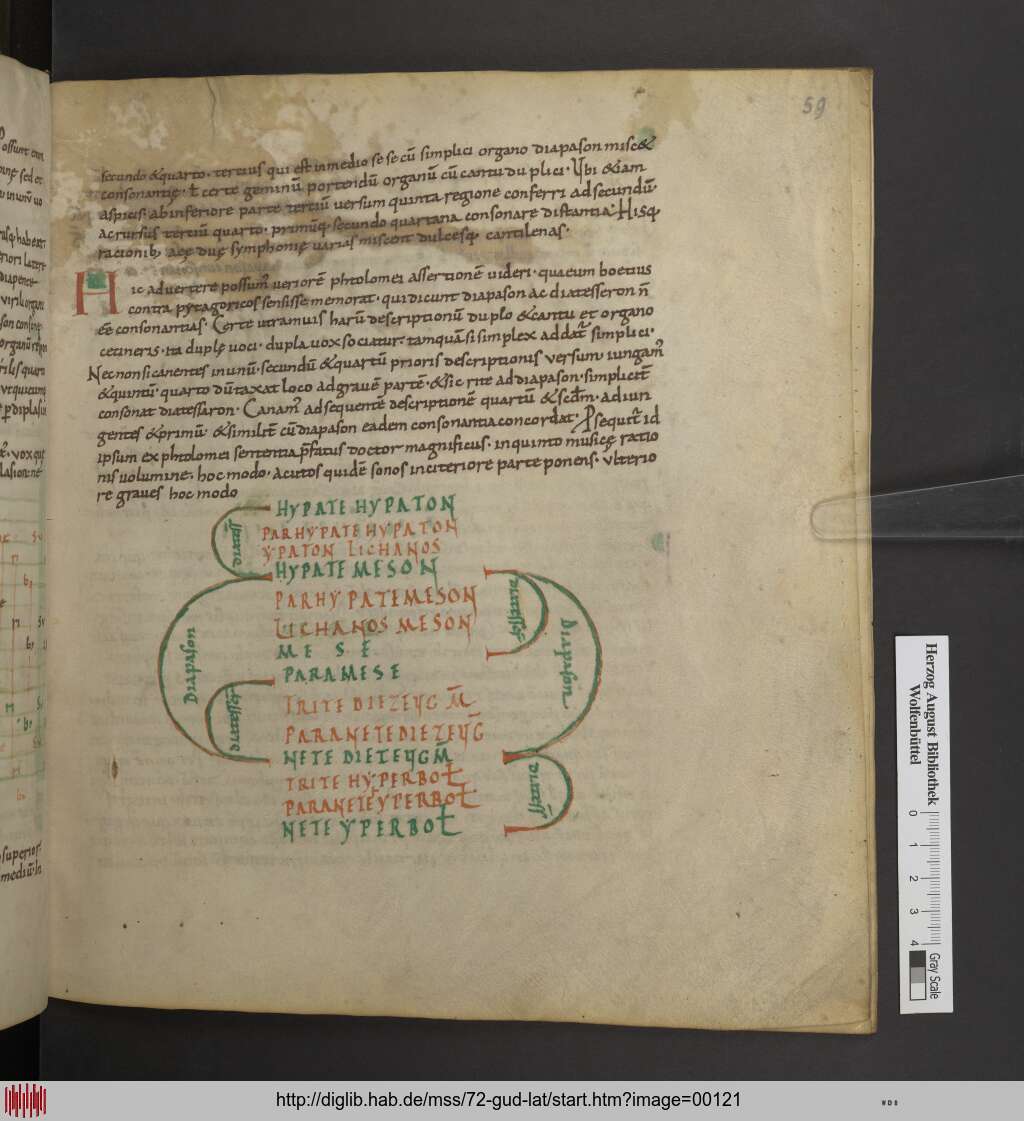 59
secundo &quarto. tertius qui est in medio se se cū simplici organo diapason misc&
consonantię. ł certe geminū portendū organū cū cantu du plici. Ubi &iam
aspicis. ab inferiore parte tertiū versum quinta regione conferri ad secundū.
ac rursus tertiū quarto. primūq; secundo quartana consonare distantia. Hisq;
racionib; aeę duę symphonię varias miscent dulcesq; cantilenas.
Hic advertere possum; veriorē phtolomei assertionē videri. quae cum boetius
contra pytagoricos sensisse memorat. qui dicunt diapason ac diatesseron ñ
ēē consonantias. Certe utramuis harū descriptionū duplo &cantu et organo
cecineris. ita duplę voci. dupla vox sociatur. tamquā si simplex addat simplici.
Nec non si canentes in unū. secundū &quartū prioris descriptionis versum iungam
&quintū. quarto dūtaxat loco ad gravē partē. &sic rite ad diapason. simplicitē
consonat diatessaron. Canam ad sequentē descriptionē quartū &scdm. adiun
gentes &primū. &similit cū diapason eadem consonantia concordat. Psequit id
ipsum ex phtolomei sententia p̄fatus doctor magnificus. in quinto musicę ratio
nis volumine. hoc modo. acutos quidē sonos in citeriore parte ponens. ulterio
re graves hoc modo
HYPATE HYPATON
PARHYPATE HYPATON
YPATON LICHANOS
HYPATE MESON
PARHYPATEMESON
LICHANOS MESON
MESE
PARAMESE
TRITE DIEZEUG M̄
PARANETEDIEZEUḠ
NETE DIEZEUGM̄
TRITE HYPERBOŁ
PARANETEYPERBOŁ
NETE YPERBOŁ
Diapason
Diapason
Herzog August Bibliothek
Wolfenbüttel
0 1 2 3 4
Gray Scale
http://diglib.hab.de/mss/72-gud-lat/start.htm?image=00121
WDB